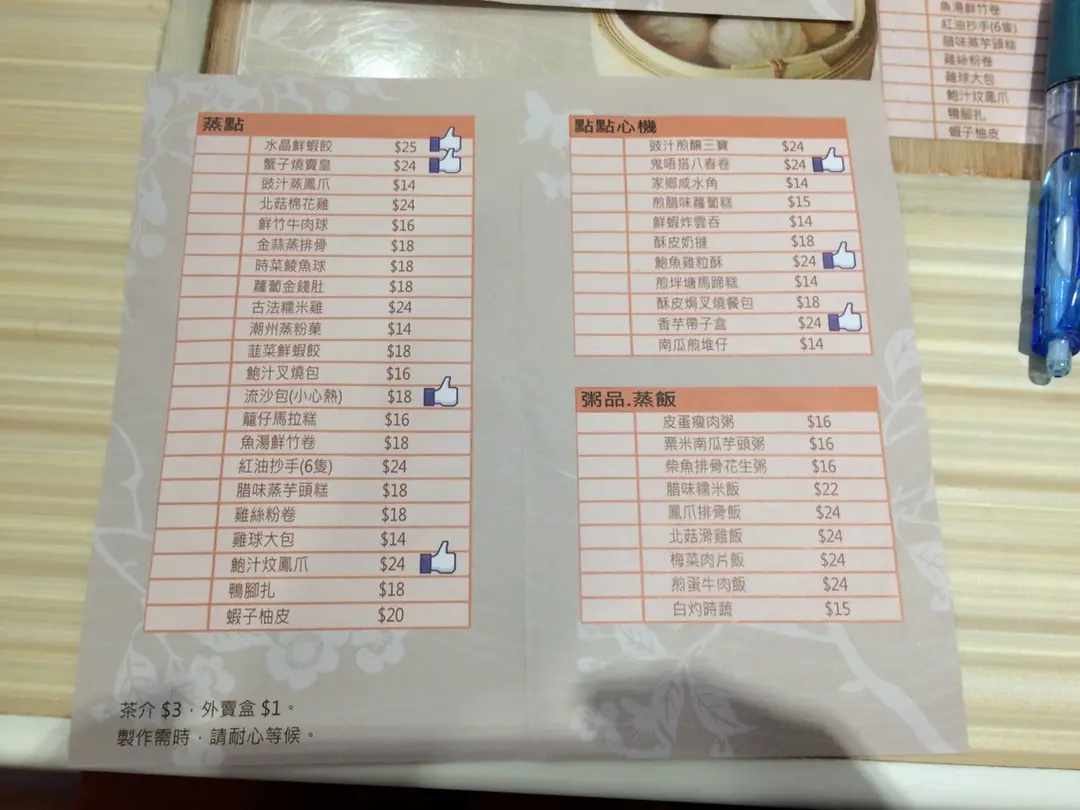 蒸點
水晶鮮蝦餃 $25
蟹子燒賣皇 $24
豉汁蒸鳳爪 $14
北菇棉花雞 $24
鮮竹牛肉球 $16
金蒜蒸排骨 $18
時菜鯪魚球 $18
蘿蔔金錢肚 $18
古法糯米雞 $24
潮州蒸粉菓 $14
韮菜鮮蝦餃 $18
鮑汁叉燒包 $16
流沙包(小心熱) $18
籠仔馬拉糕 $16
魚湯鮮竹卷 $18
紅油抄手(6隻) $24
腊味蒸芋頭糕 $18
雞絲粉卷 $18
雞球大包 $14
鮑汁炆鳳爪 $24
鴨腳扎 $18
蝦子柚皮 $20
茶介 $3，外賣盒 $1。
製作需時，請耐心等候。
點點心機
豉汁煎釀三寶 $24
鬼唔搭八春卷 $24
家鄉咸水角 $14
煎腊味蘿蔔糕 $15
鮮蝦炸雲吞 $14
酥皮奶撻 $18
鮑魚雞粒酥 $24
煎泮塘馬蹄糕 $14
酥皮焗叉燒餐包 $18
香芋帶子盒 $24
南瓜煎堆仔 $14
粥品.蒸飯
皮蛋瘦肉粥 $16
粟米南瓜芋頭粥 $16
柴魚排骨花生粥 $16
腊味糯米飯 $22
鳳爪排骨飯 $24
北菇滑雞飯 $24
梅菜肉片飯 $24
煎蛋牛肉飯 $24
白灼時蔬 $15
魚湯鮮竹卷
紅油抄手(6隻)
腊味蒸芋頭糕
雞絲粉卷
雞球大包
鮑汁炆鳳爪
鴨腳扎
蝦子柚皮